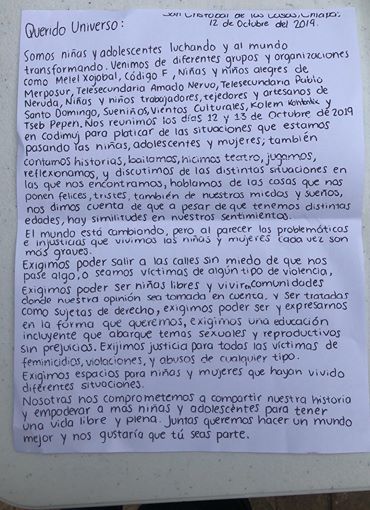 San Cristobal de las Casas, Chiapas.
12 de Octubre del 2019.
Querido Universo:
Somos niñas y adolescentes luchando y al mundo
transformando. Venimos de diferentes grupos y organizaciones
como Melel Xojobal, Código F, Niñas y niños alegres de
Merposur, Telesecundaria Amado Nervo, Telesecundaria Pablo
Neruda, Niñas y niños trabajadores, tejedores y artesanos de
Santo Domingo, Sueniños, Vientos Culturales, Kolem
Tseb Pepen. Nos reunimos los días 12 y 13 de Octubre de 2019
en Codimuj para platicar de las situaciones que estamos
pasando las niñas, adolescentes y mujeres; también
contamos historias, bailamos, hicimos teatro, jugamos,
reflexionamos, y discutimos de las distintas situaciones en
las que nos encontramos, hablamos de las cosas que nos
ponen felices, tristes, también de nuestros miedos y sueños,
nos dimos cuenta de que a pesar de que tenemos distintas
edades, hay similitudes en nuestros sentimientos.
El mundo está cambiando, pero al parecer las problemáticas
e injusticias que vivimos las niñas y mujeres cada vez son
más graves.
Exigimos poder salir a las calles sin miedo de que nos
pase algo, o seamos víctimas de algún tipo de violencia,
Exigimos poder ser niñas libres y vivir en comunidades
donde nuestra opinión sea tomada en cuenta, y ser tratadas
como sujetas de derecho, exigimos poder ser y expresarnos
en la forma que queremos, exigimos una educación
incluyente que abarque temas sexuales y reproductivos
sin prejucios. Exijimos justicia para todas las víctimas de
feminicidios, violaciones, y abusos de cualquier tipo.
Exigimos espacios para niñas y mujeres que hayan vivido
diferentes situaciones.
Nosotras nos comprometemos a compartir nuestra historia
y empoderar a más niñas y adolescentes para tener
una vida libre y plena. Juntas queremos hacer un mundo
mejor y nos gustaría que tú seas parte.